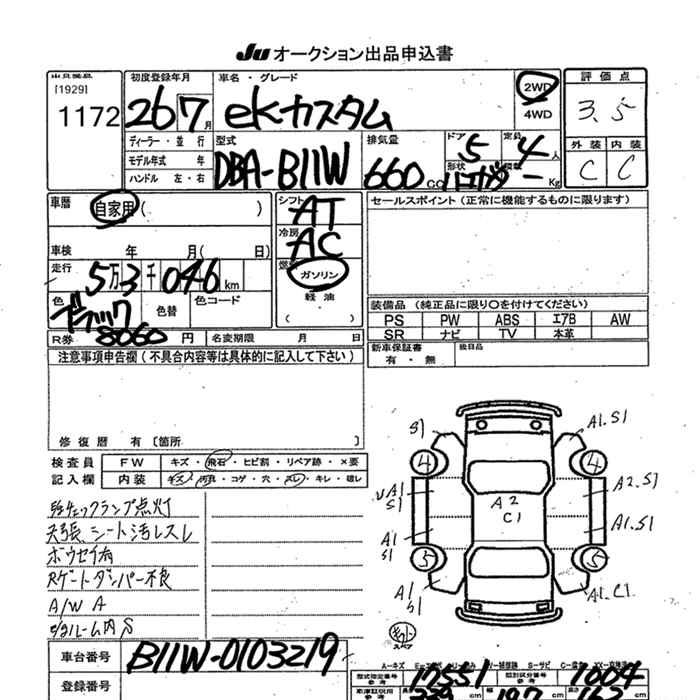 Ju オークション出品申込書
出品番号 初度登録年月 車名・グレード 2WD 評価点
[1929]
1172 26 7月 eKカスタム 4WD 3.5
ディーラー・並行 型式 排気量 ドア 定員 外装 内装
モデル年式 年 DBA-B11W 660cc 5 4人 C C
ハンドル 左・右 形状 積載 - Kg
車歴 自家用( ) シフト AT セールスポイント(正常に機能するものに限ります)
冷房 AC
車検 年 月( 日) 燃料 ガソリン
走行 5万3千046km 軽油
色 ブラック 色替 色コード ( )
装備品(純正品に限り○を付けてください)
PS PW ABS エアB AW
SR ナビ TV 本革
R券 8060円 名変期限 月 日
新車保証書 有・無 後日品
注意事項申告欄(不具合内容等は具体的に記入して下さい)
修復歴 有〔箇所
検査員 FW キズ・飛石・ヒビ割・リペア跡・×要
記入欄 内装 キズ・汚れ・コゲ・穴・スレ・キレ・破レ
チェックランプ点灯
天張、シート汚レスレ
ボウセイ有
Rゲートダンパー不良
A/W A
ルーム内S
S1 A1.S1
4 4
A1 S1 A2 C1 A2.S1
A1 S1 A1.S1
5 5
A1 S1 A1.C1
スペア
車台番号 B11W-0103219
A-キズ
型式指定番号 参考 17551 類別区分番号 参考 1004
登録番号